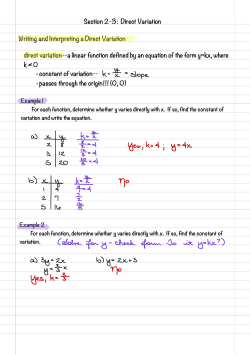 Section 2-3: Direct Variation
Writing and Interpreting a Direct Variation
direct variation--a linear function defined by an equation of the form y=kx, where
k ≠ 0
- constant of variation-- k = y/x = slope
- passes through the origin!!! (0,0)
Example 1
For each function, determine whether y varies directly with x. If so, find the constant of
variation and write the equation.
a) x y k = y/x
2 8 8/2 = 4 Yes, k=4 ; y = 4x
3 12 12/3 = 4
5 20 20/5 = 4
b) x y k = y/x no
1 4 4/1 = 4
2 9 9/2
5 16 16/5
Example 2
For each function, determine whether y varies directly with x. If so, find the constant of
variation. (solve for y - check form. Is it y=kx?)
a) 3y = 2x b) y = 2x+3
y = 2/3 x no
Yes, k = 2/3